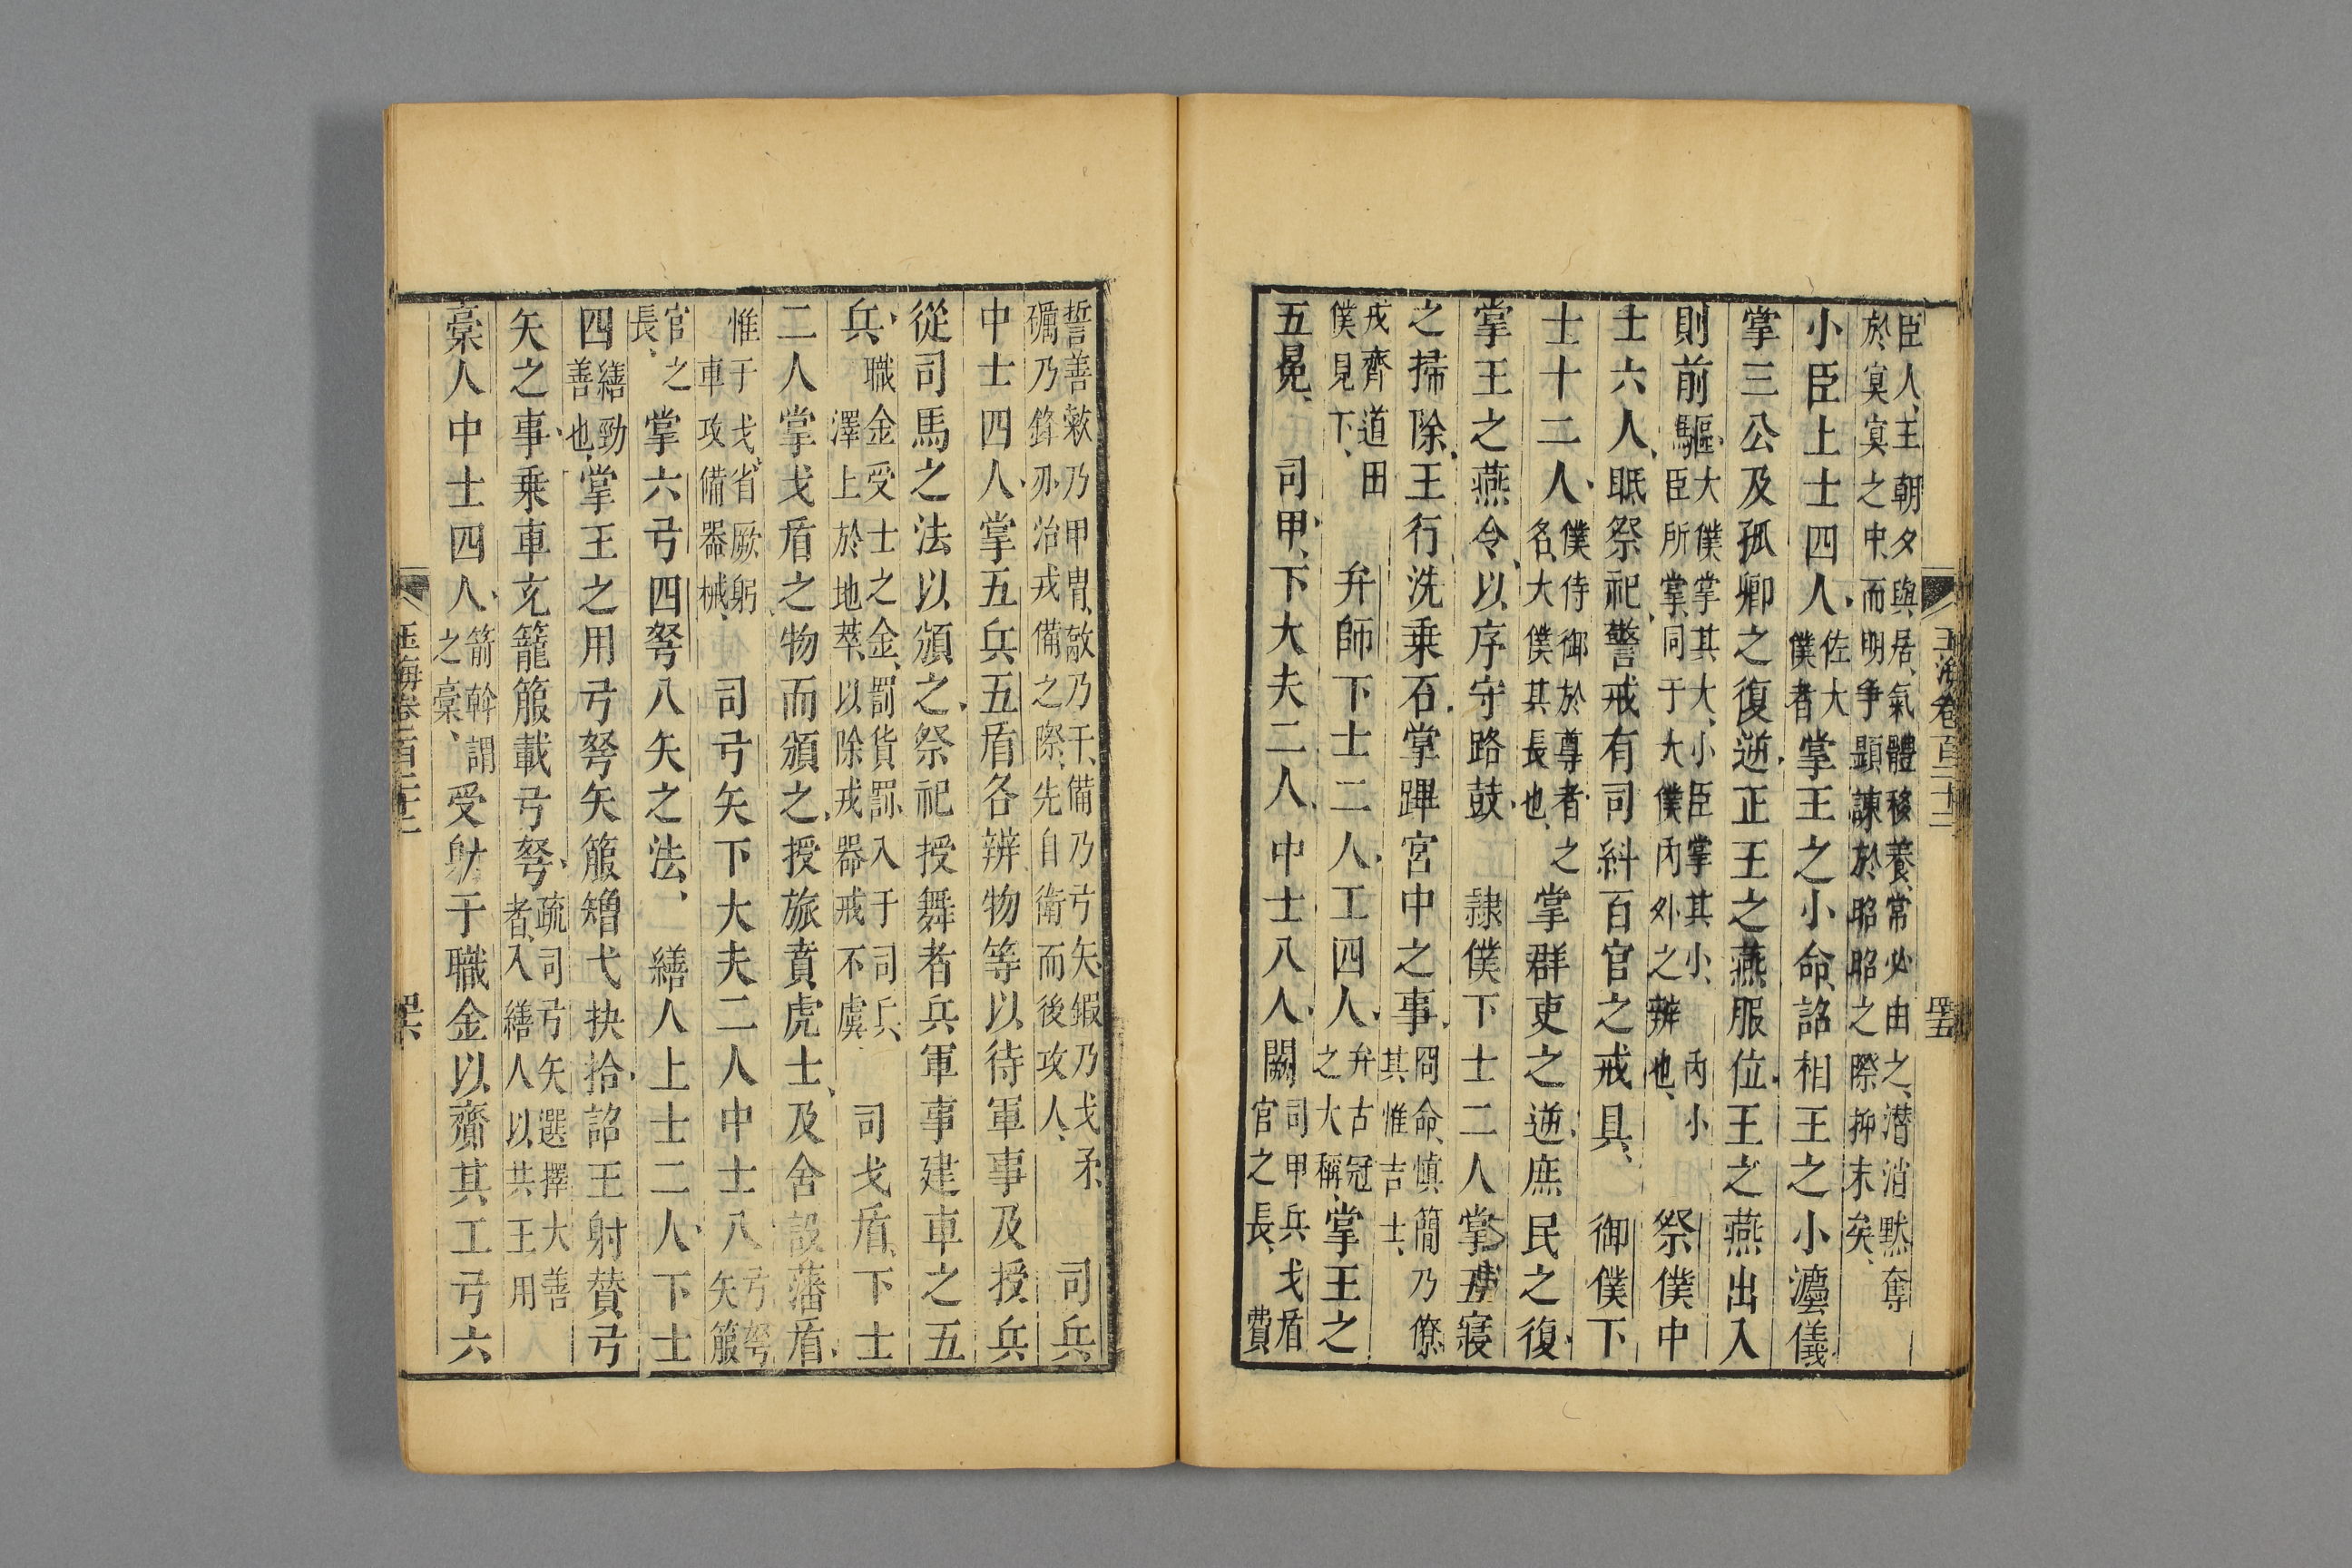 臣人王朝夕與居氣體移養常必由之潛消默奪
於冥冥之中而明爭顯諫於昭昭之際抑末矣
小臣上士四人佐大僕者掌王之小命詔相王之小灋儀
掌三公及孤卿之復逆正王之燕服位王之燕出入
則前驅大僕掌其大小臣掌其小臣所掌同于大僕內外之辨也 祭僕中
士六人眂祭祀警戒有司糾百官之戒具 御僕下
士十二人僕侍御於尊者之名大僕其長也掌群吏之逆庶民之復
掌王之燕令以序守路鼓 隸僕下士二人掌五寢
之掃除王行洗乗石掌蹕宮中之事冏命慎簡乃僚其惟吉士
戎齊道田僕見下 弁師下士二人工四人弁古冠之大稱掌王之
五冕 司甲下大夫二人中士八人闕司甲兵戈盾官之長 費
誓善敹乃甲冑敿乃干備乃弓矢鍛乃戈矛
礪乃鋒刃治戎備之際先自衛而後攻人 司兵
中士四人掌五兵五盾各辨物等以待軍事及授兵
從司馬之法以頒之祭祀授舞者兵軍事建車之五
兵職金受士之金罰貨罰入于司兵澤上於地萃以除戎器戒不虞 司戈盾下士
二人掌戈盾之物而頒之授旅賁虎士及舍設藩盾
惟干戈省厥躬車攻備器械 司弓矢下大夫二人中士八弓弩矢箙
官之長掌六弓四弩八矢之法 繕人上士二人下士
四繕勁善也掌王之用弓弩矢箙矰弋抉拾詔王射贊弓
矢之事乗車充籠箙載弓弩疏司弓矢選擇大善者入繕人以共王用
槀人中士四人箭幹謂之槀受財于職金以齎其工弓六
玉海卷一百二十二